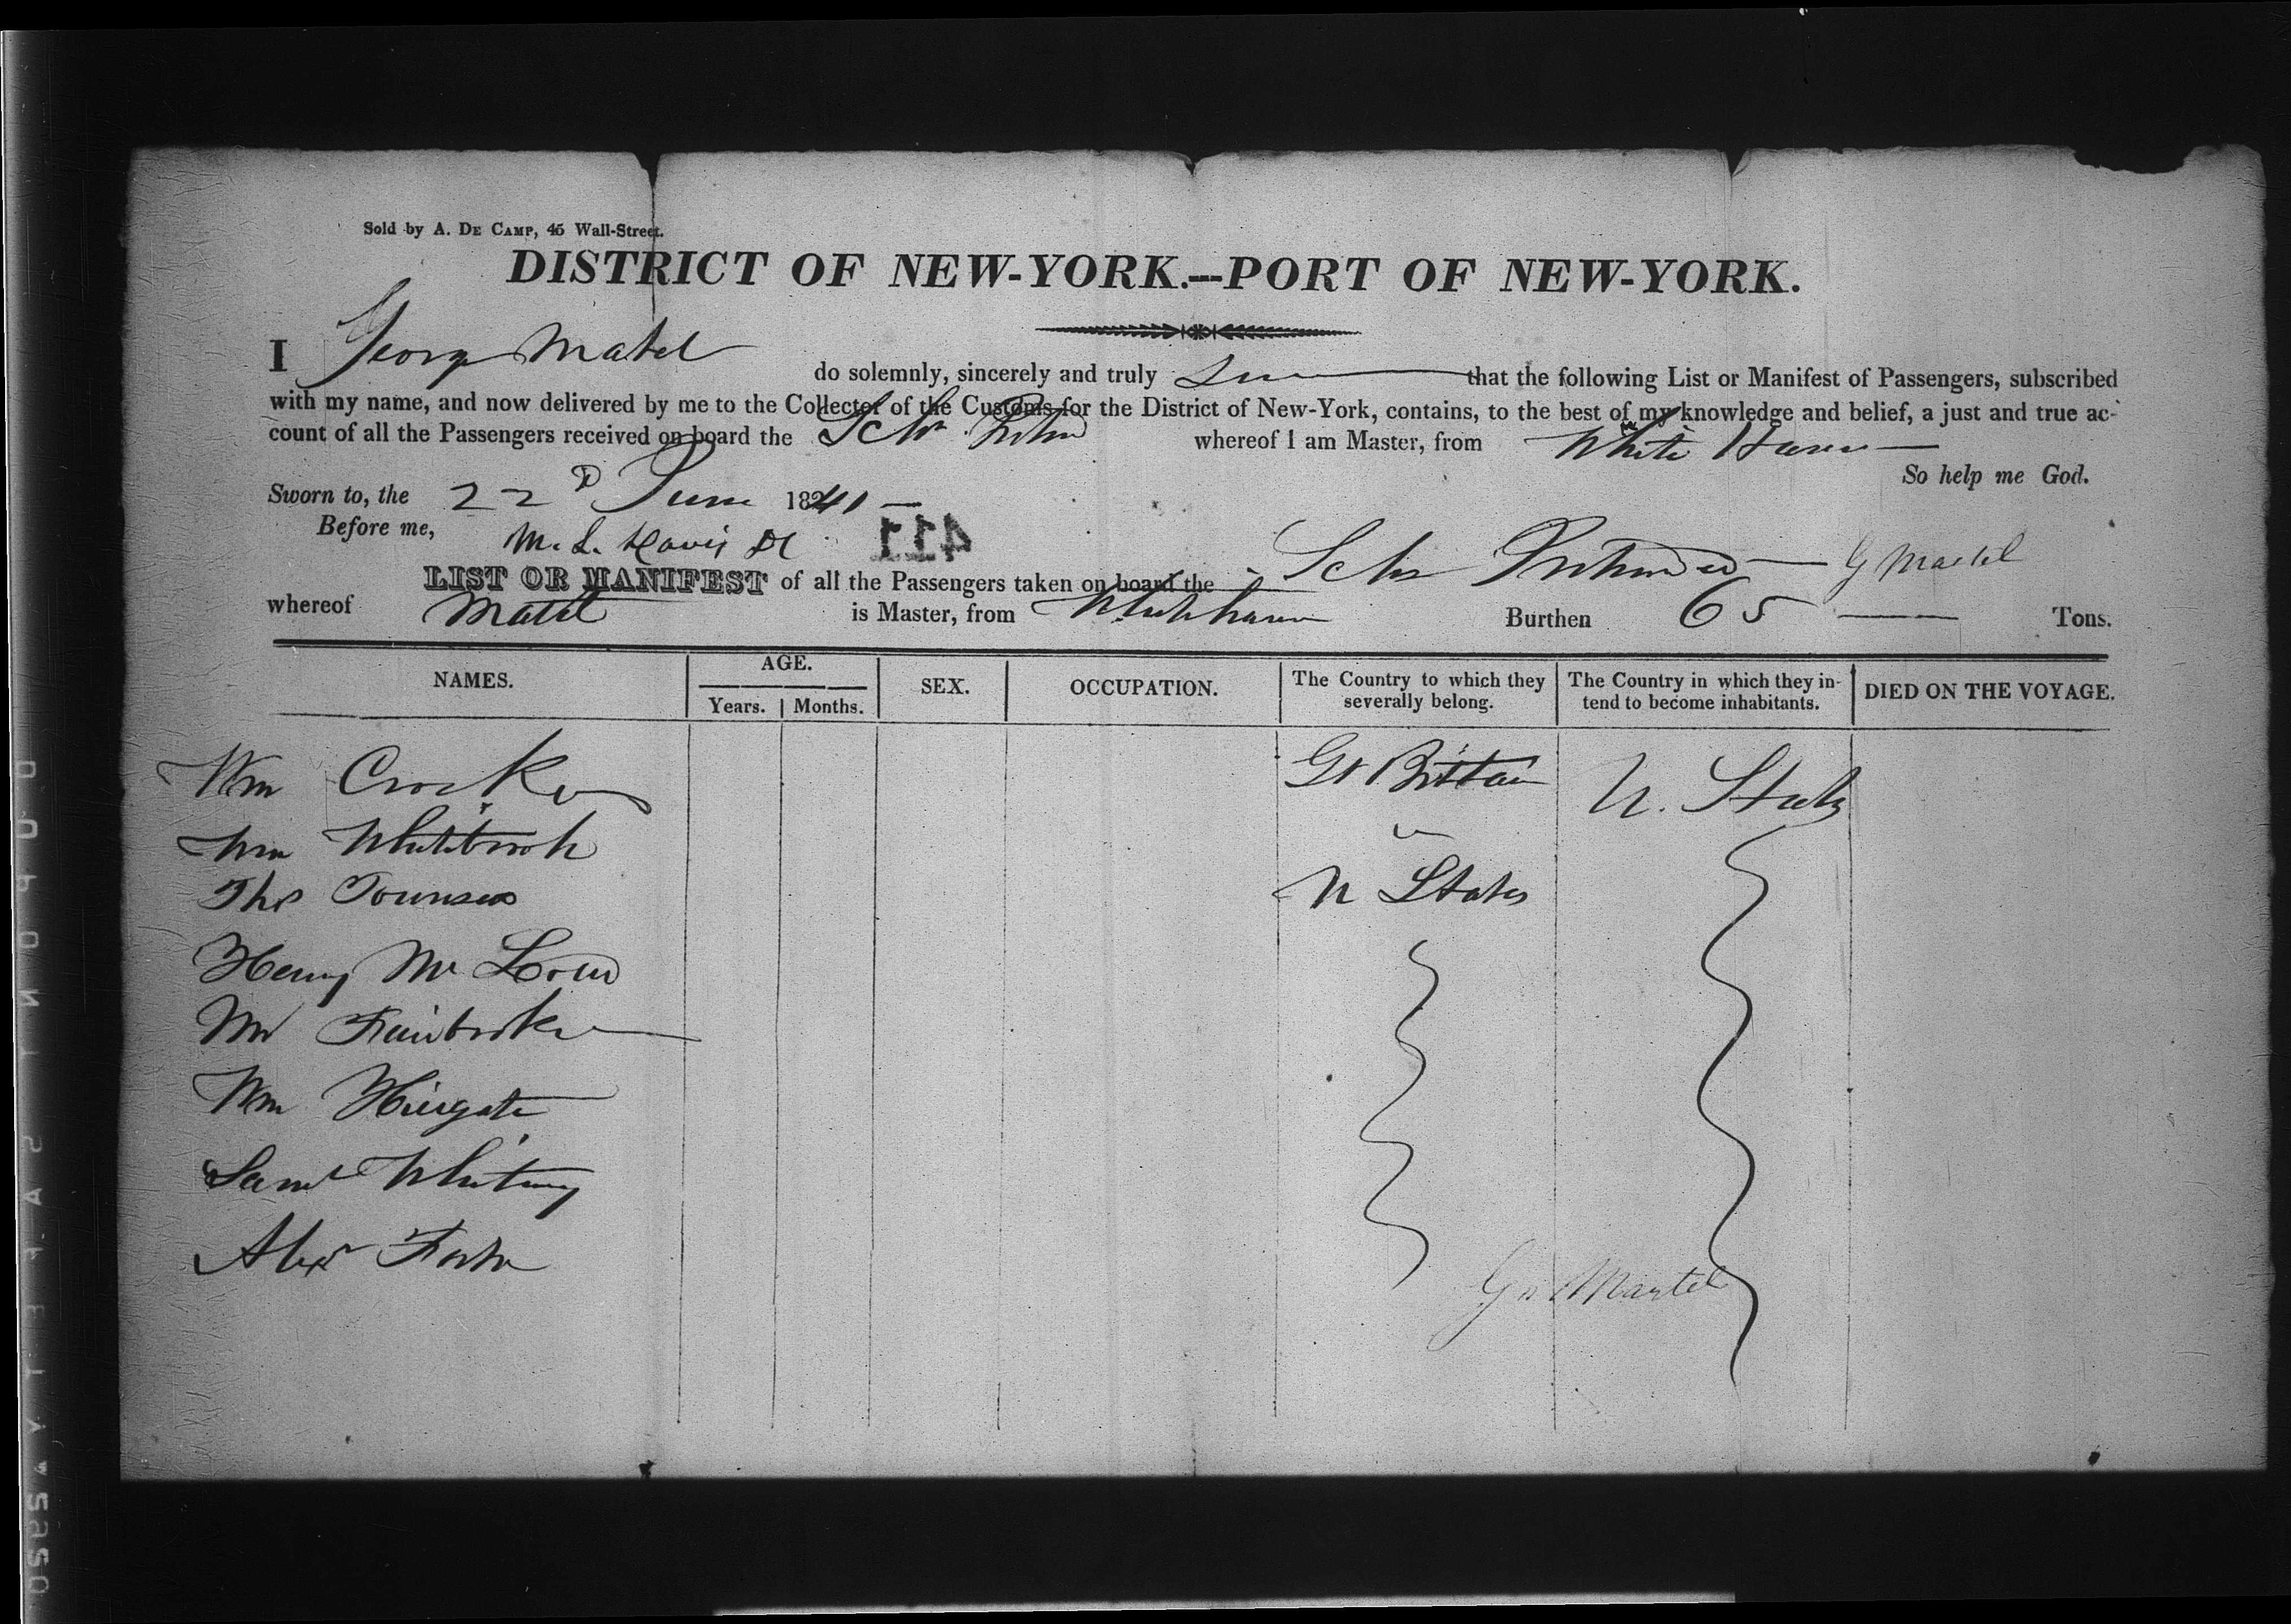 Sold by A. De Camp, 45 Wall-Street.
DISTRICT OF NEW-YORK.--PORT OF NEW-YORK.
I George Matel do solemnly, sincerely and truly that the following List or Manifest of Passengers, subscribed
with my name, and now delivered by me to the Collector of the Customs for the District of New-York, contains, to the best of my knowledge and belief, a just and true ac-
count of all the Passengers received on board the Schr whereof I am Master, from White Haven
So help me God.
Sworn to, the 22d June 1841
Before me, M. L. Davis
411
LIST OR MANIFEST of all the Passengers taken on board the Schr G Martel
whereof Matel is Master, from Whitehaven Burthen 65 Tons.
NAMES. AGE. Years. Months. SEX. OCCUPATION. The Country to which they severally belong. The Country in which they in- tend to become inhabitants. DIED ON THE VOYAGE.
Wm Crocker Gt Brittain U. States
Wm Whitebrook
Ths U States
Henry Mc
Mr
Wm
Saml Whitney
Alexr Foster
Go Martel